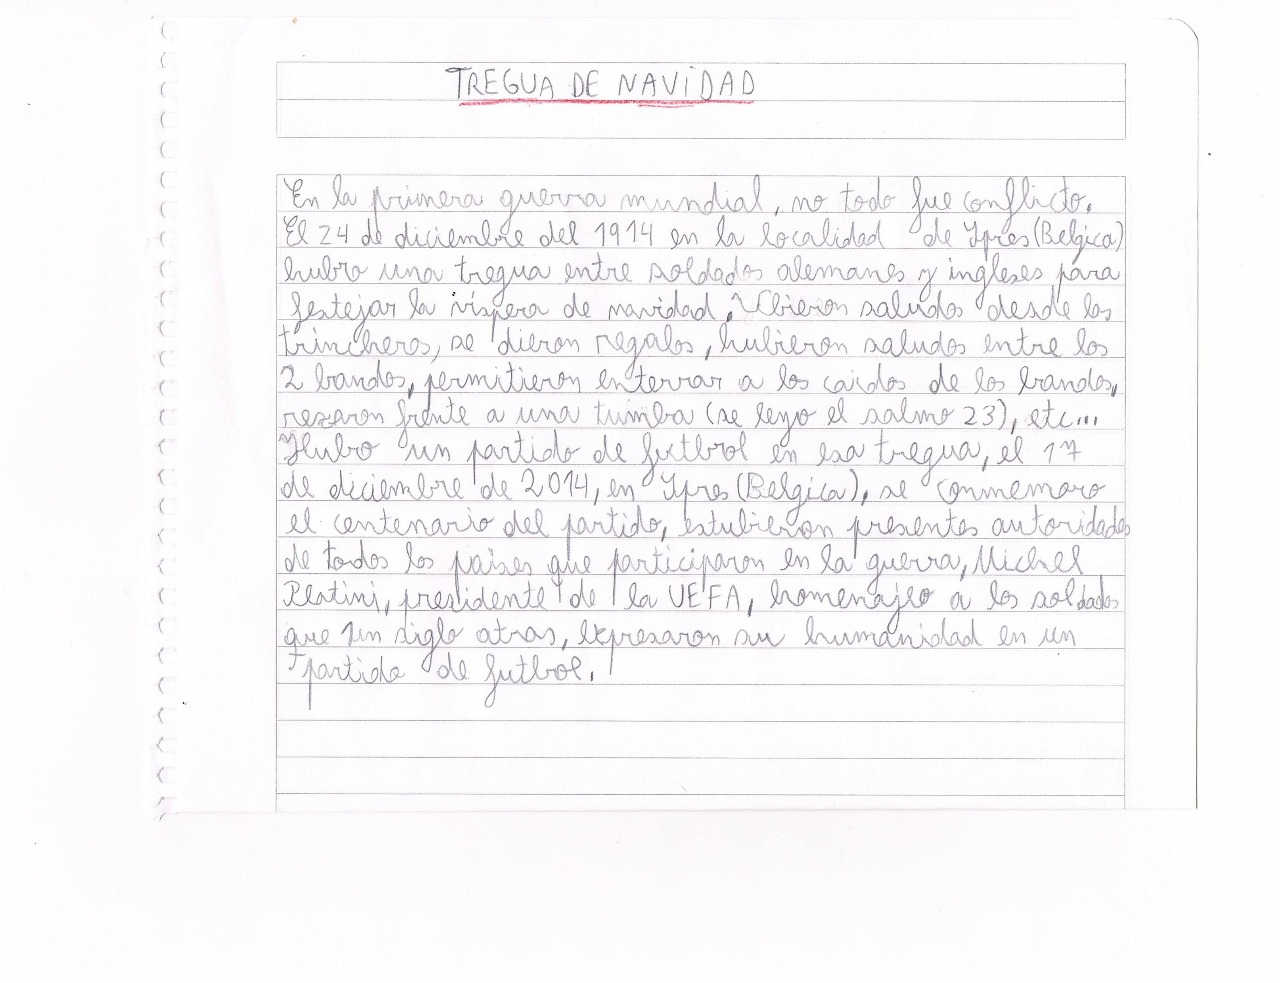 TREGUA DE NAVIDAD
En la primera guerra mundial, no todo fue conflicto.
El 24 de diciembre del 1914 en la localidad de Ypres (Belgica)
hubo una tregua entre soldados alemanes y ingleses para
festejar la vispera de navidad, Ubieron saludos desde las
trincheros, se dieron regalos, hubieron saludos entre los
2 bandos, permitieron enterrar a los caidos de los bandos,
rezaron frente a una tumba (se leyo el salmo 23), etc...
Hubo un partido de futbol en esa tregua, el 17
de diciembre de 2014, en Ypres (Belgica), se conmemoro
el centenario del partido, estubieron presentes autoridades
de todos los paises que participaron en la guerra, Michel
Platini, presidente de la UEFA, homenajeo a los soldados
que un siglo atras, expresaron su humanidad en un
partido de futbol.